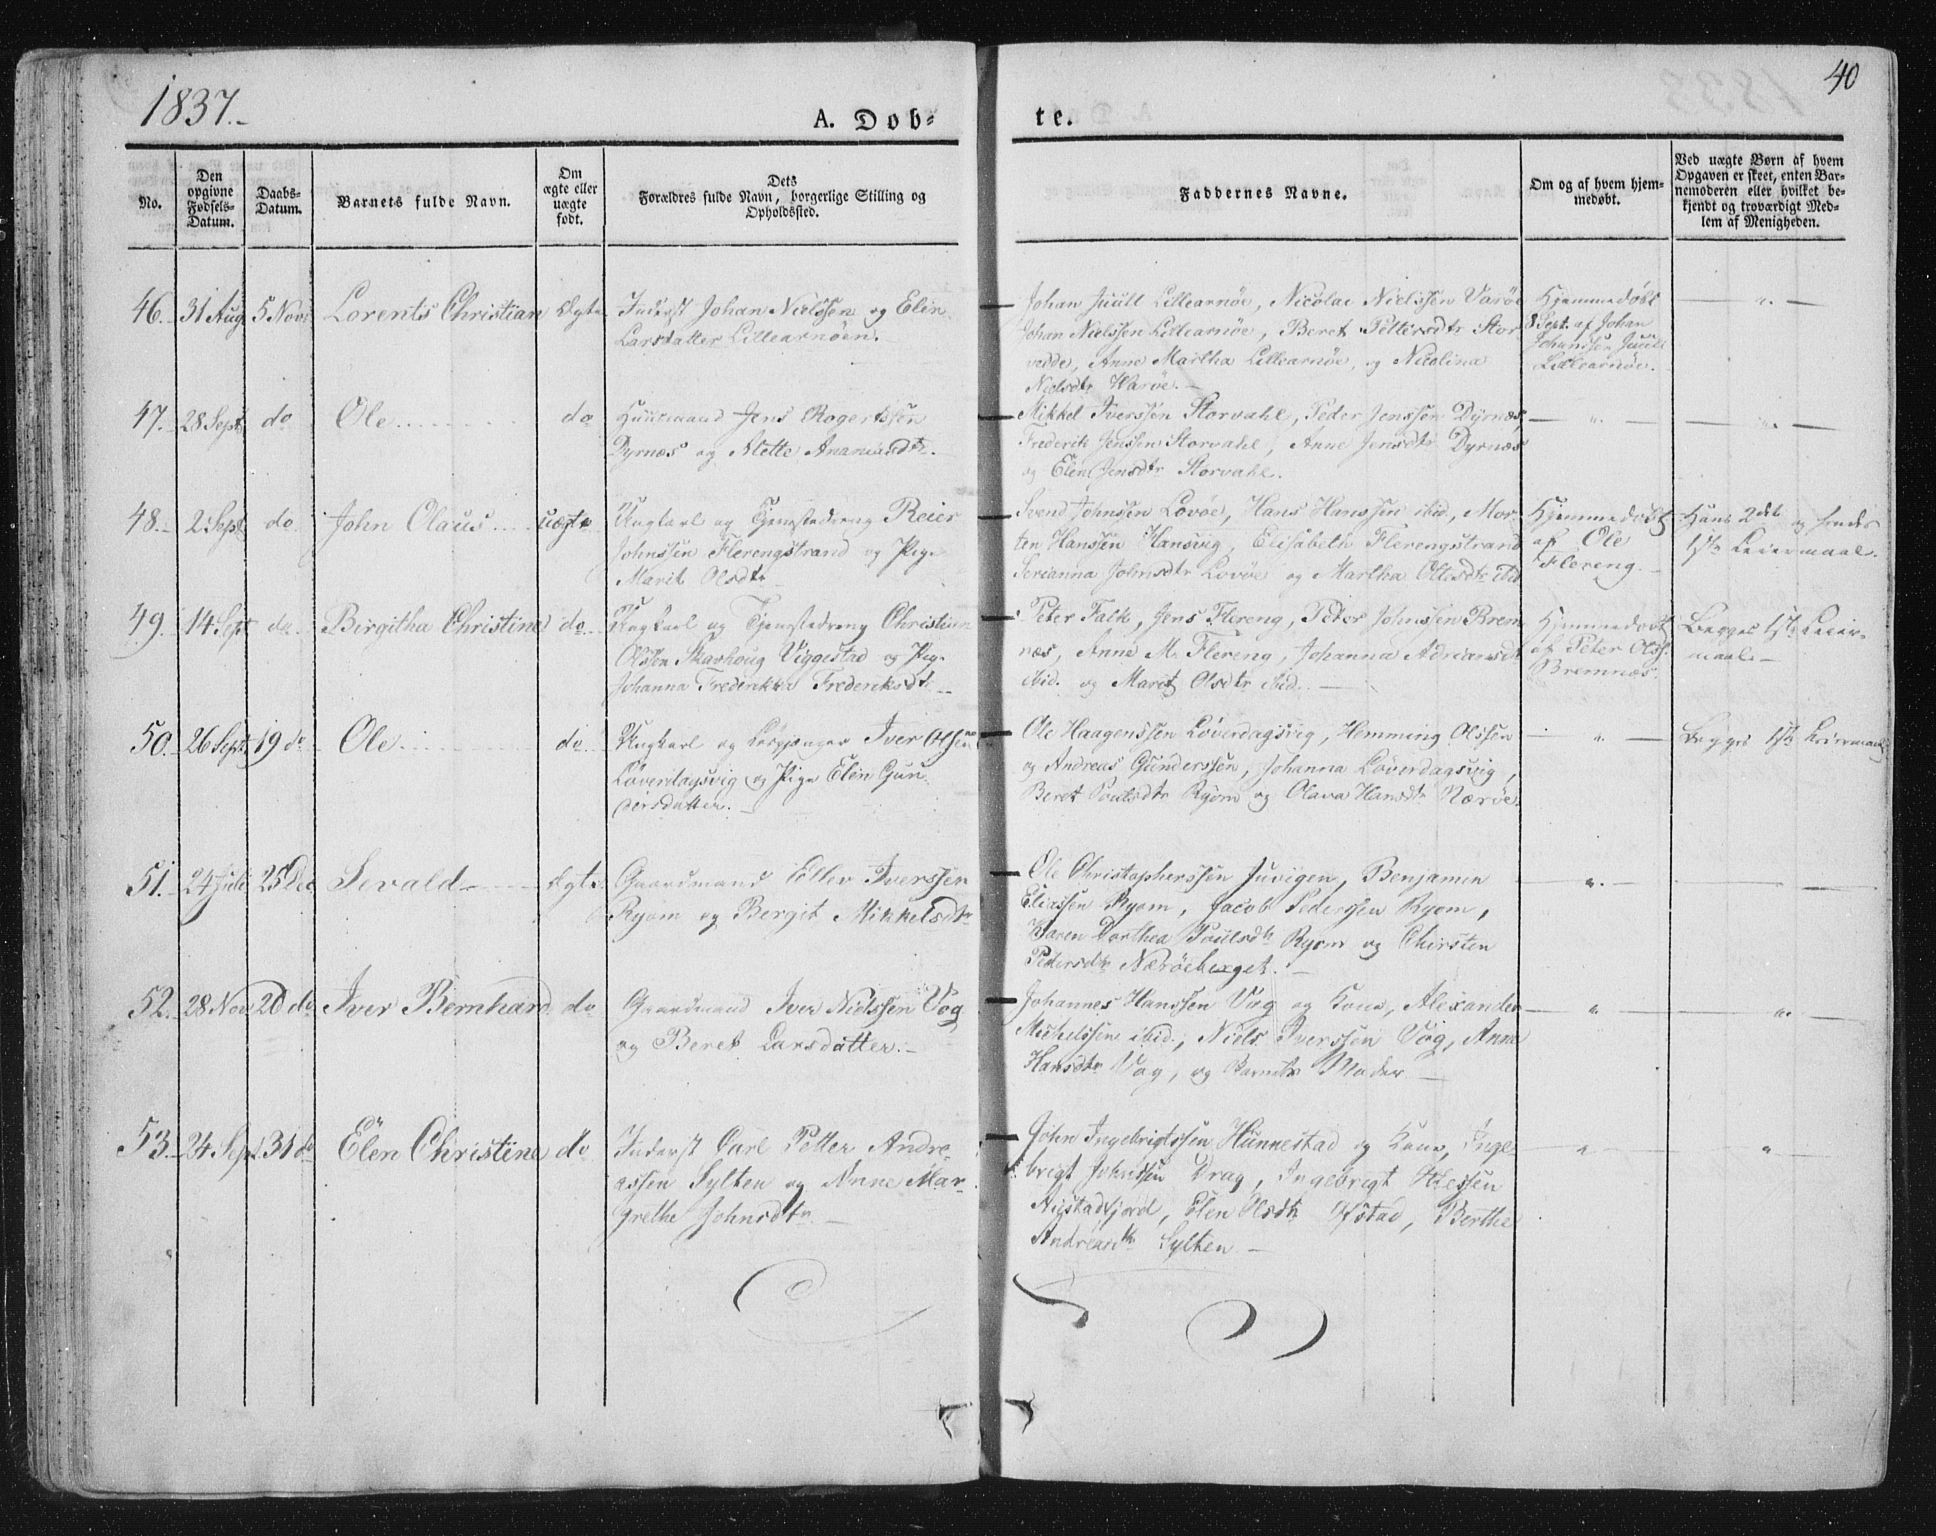 1837.-
A. Dob-
te.
40
No.
Den opgivne Fødsels-Datum.
Daabs-Datum.
Barnets fulde Navn.
Om ægte eller uægte født.
Dets Forældres fulde Navn, borgerlige Stilling og Opholdssted.
Faddernes Navne.
Om og af hvem hjem-medøbt.
Ved uægte Børn af hvem Opgaven er skeet, enten Bar-nemoderen eller hvilket be-kjendt og troværdigt Med-lem af Menigheden.
46. 31 Aug 5 Nov Lorents Christian Ægte Inderst Johan Nielssen og Elen
Larsdatter Lillearnøen.
Johan Juull Lillearnøe, Nicolai Nielssen Varøe
Johan Nielssen Lillearnøe, Beret Pettersdtr Stor
Anne Martha Lillearnøe, og Nicolina
Nielsdtr Varøe.-
Hjemmedøbt
8 Sept. af Johan
Johanssen Juull
Lillearnøe.
47. 28 Sept do Ole do Huusmand Jens Rogertssen
Dyrnæs og Mette Ananiasdtr.
Mikkel Iverssen Storvahl, Peder Jenssen Dyrnæs,
Frederik Jenssen Storvahl, Anne Jensdtr Dyrnæs
og Elen Jensdtr Storvahl.
48. 2 Sept do John Olaus uægte Ungkarl og Tjenstedreng Reier
Johnssen Flerengstrand og Pige
Marit Olsdtr
Svend Johnsen Lovøe, Hans Hanssen ibid, Mor-
ten Hanssen Hansvig, Elisabeth Flerengstrand
Serianna Johnsdtr Lovøe og Martha Ottesdtr ibid
Hjemmedøbt
af Ole
Flereng.
Hans 2det og hendes
1ste Leiermaal.
49. 14 Sept do Birgitha Christine do Ungkarl og Tjenstedreng Christian
Olssen Skavhoug Viggestad og Pige
Johanna Fredrikka Frederiksdtr
Peter Falk, Jens Flereng, Peter Johnssen Brem
næs, Anne M. Flereng, Johanna Adriansdtr
ibid. og Marit Olsdtr ibid.
Hjemmedøbt
af Peter Olss.
Bremnæs.
Begges 1ste Leier-
maal.-
50. 26 Sept. 19 do Ole do Ungkarl og Løsgjænger Iver Olssen
Løverdagsvig og Pige Elen Gun
dersdatter.-
Ole Haagenssen Løverdagsvig, Hemming Olssen
og Andreas Gunderssen, Johanna Løverdagsvig,
Beret Poulsdtr Ryom og Olava Hansdtr Nærøe.
Begges 1ste Leiermaal
51. 24 Juli 25 Dec Sevald Ægte Gaardmand Peller Iverssen
Ryom og Bergit Mikkelsdtr
Ole Christopherssen Juvigen, Benjamin
Eliassen Ryom, Jacob Pederssen Ryom,
Karen Dorthea Poulsdtr Ryom og Chirsten
Pedersdtr Nærøeberget.-
52. 28 Nov 26 do Iver Bernhard do Gaardmand Iver Nielssen Vog
og Beret Larsdatter.-
Johannes Hanssen Vog og Kone, Alexander
Michelssen ibid., Niels Iverssen Vog, Anne
Hansdtr Vog, og Barnets Moder
53. 24 Sept. 31 do Elen Christine do Inderst Carl Petter Andre
assen Sylten og Anne Mar-
grethe Johnsdtr.
John Ingebrigtssen Hunnestad og Kone, Inge
brigt Johnssen Drag, Ingebrigt
Elen Olsdtr Ofstad, Berthe
Andreasdtr Sylten